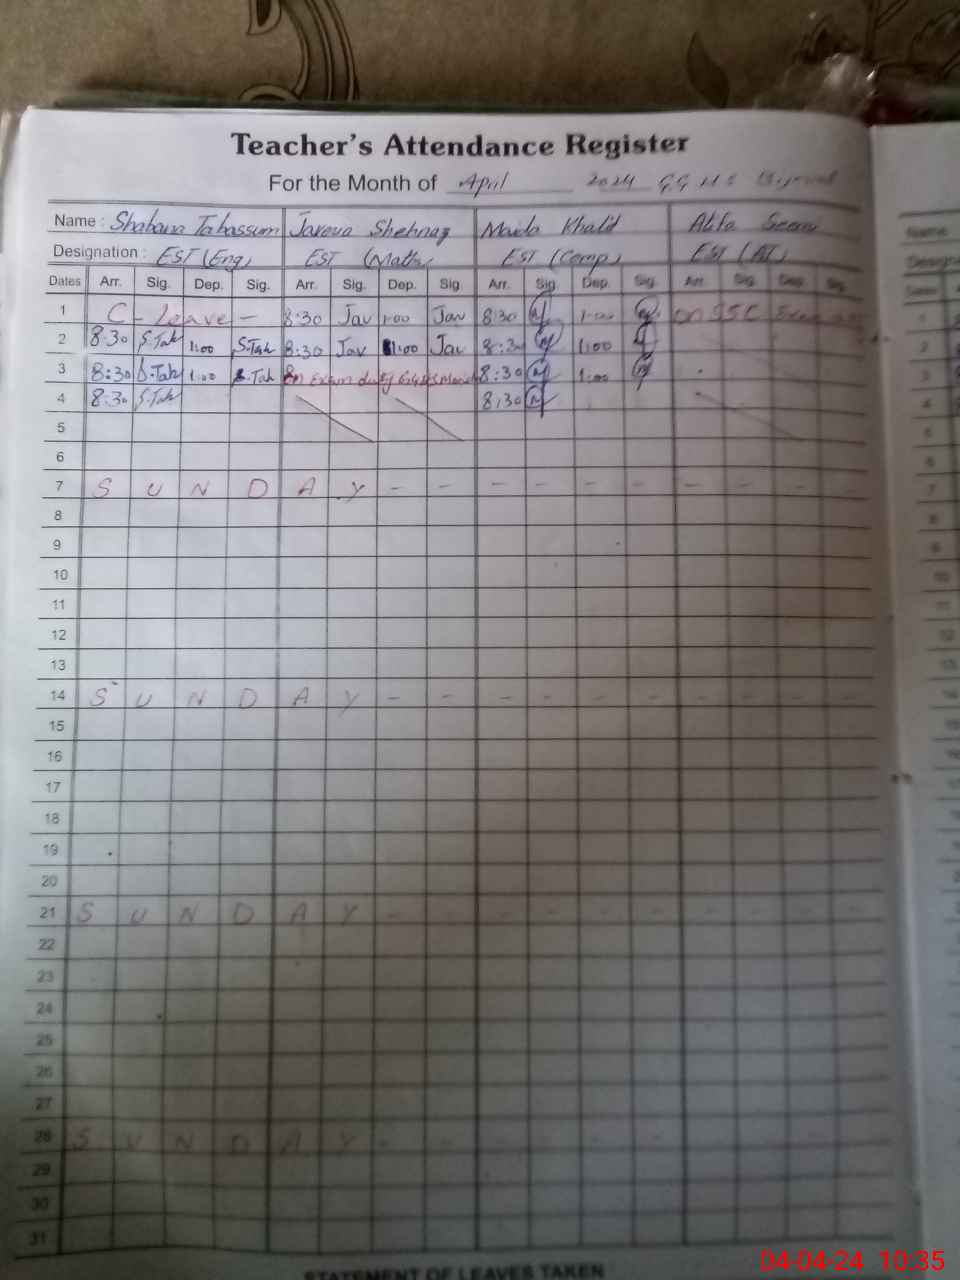 Teacher's Attendance Register
For the Month of April 2024 G G H S
Name : Shabana Tabassum Javeva Shehnaz Maida Khalid Atifa
Designation : EST (Eng) EST (Maths) EST (Comp) EST (AT)
Dates Arr. Sig. Dep. Sig. Arr. Sig. Dep. Sig. Arr. Sig. Dep. Sig. Arr. Sig. Dep. Sig.
1 C - Leave - 8:30 Jav 1:00 Jav 8:30 1:00 on SSC Exam
2 8:30 S.Tab 1:00 S.Tab 8:30 Jav 1:00 Jav 8:30 1:00
3 8:30 S.Tab 1:00 S.Tab on Exam duty 8:30 1:00
4 8:30 S.Tab 8:30
5
6
7 S U N D A Y - - - - - - - - - -
8
9
10
11
12
13
14 S U N D A Y - - - - - - - - - -
15
16
17
18
19
20
21 S U N D A Y - - - - - - - - - -
22
23
24
25
26
27
28 S U N D A Y - - - - - - - - - -
29
30
31
STATEMENT OF LEAVES TAKEN
04-04-24 10:35